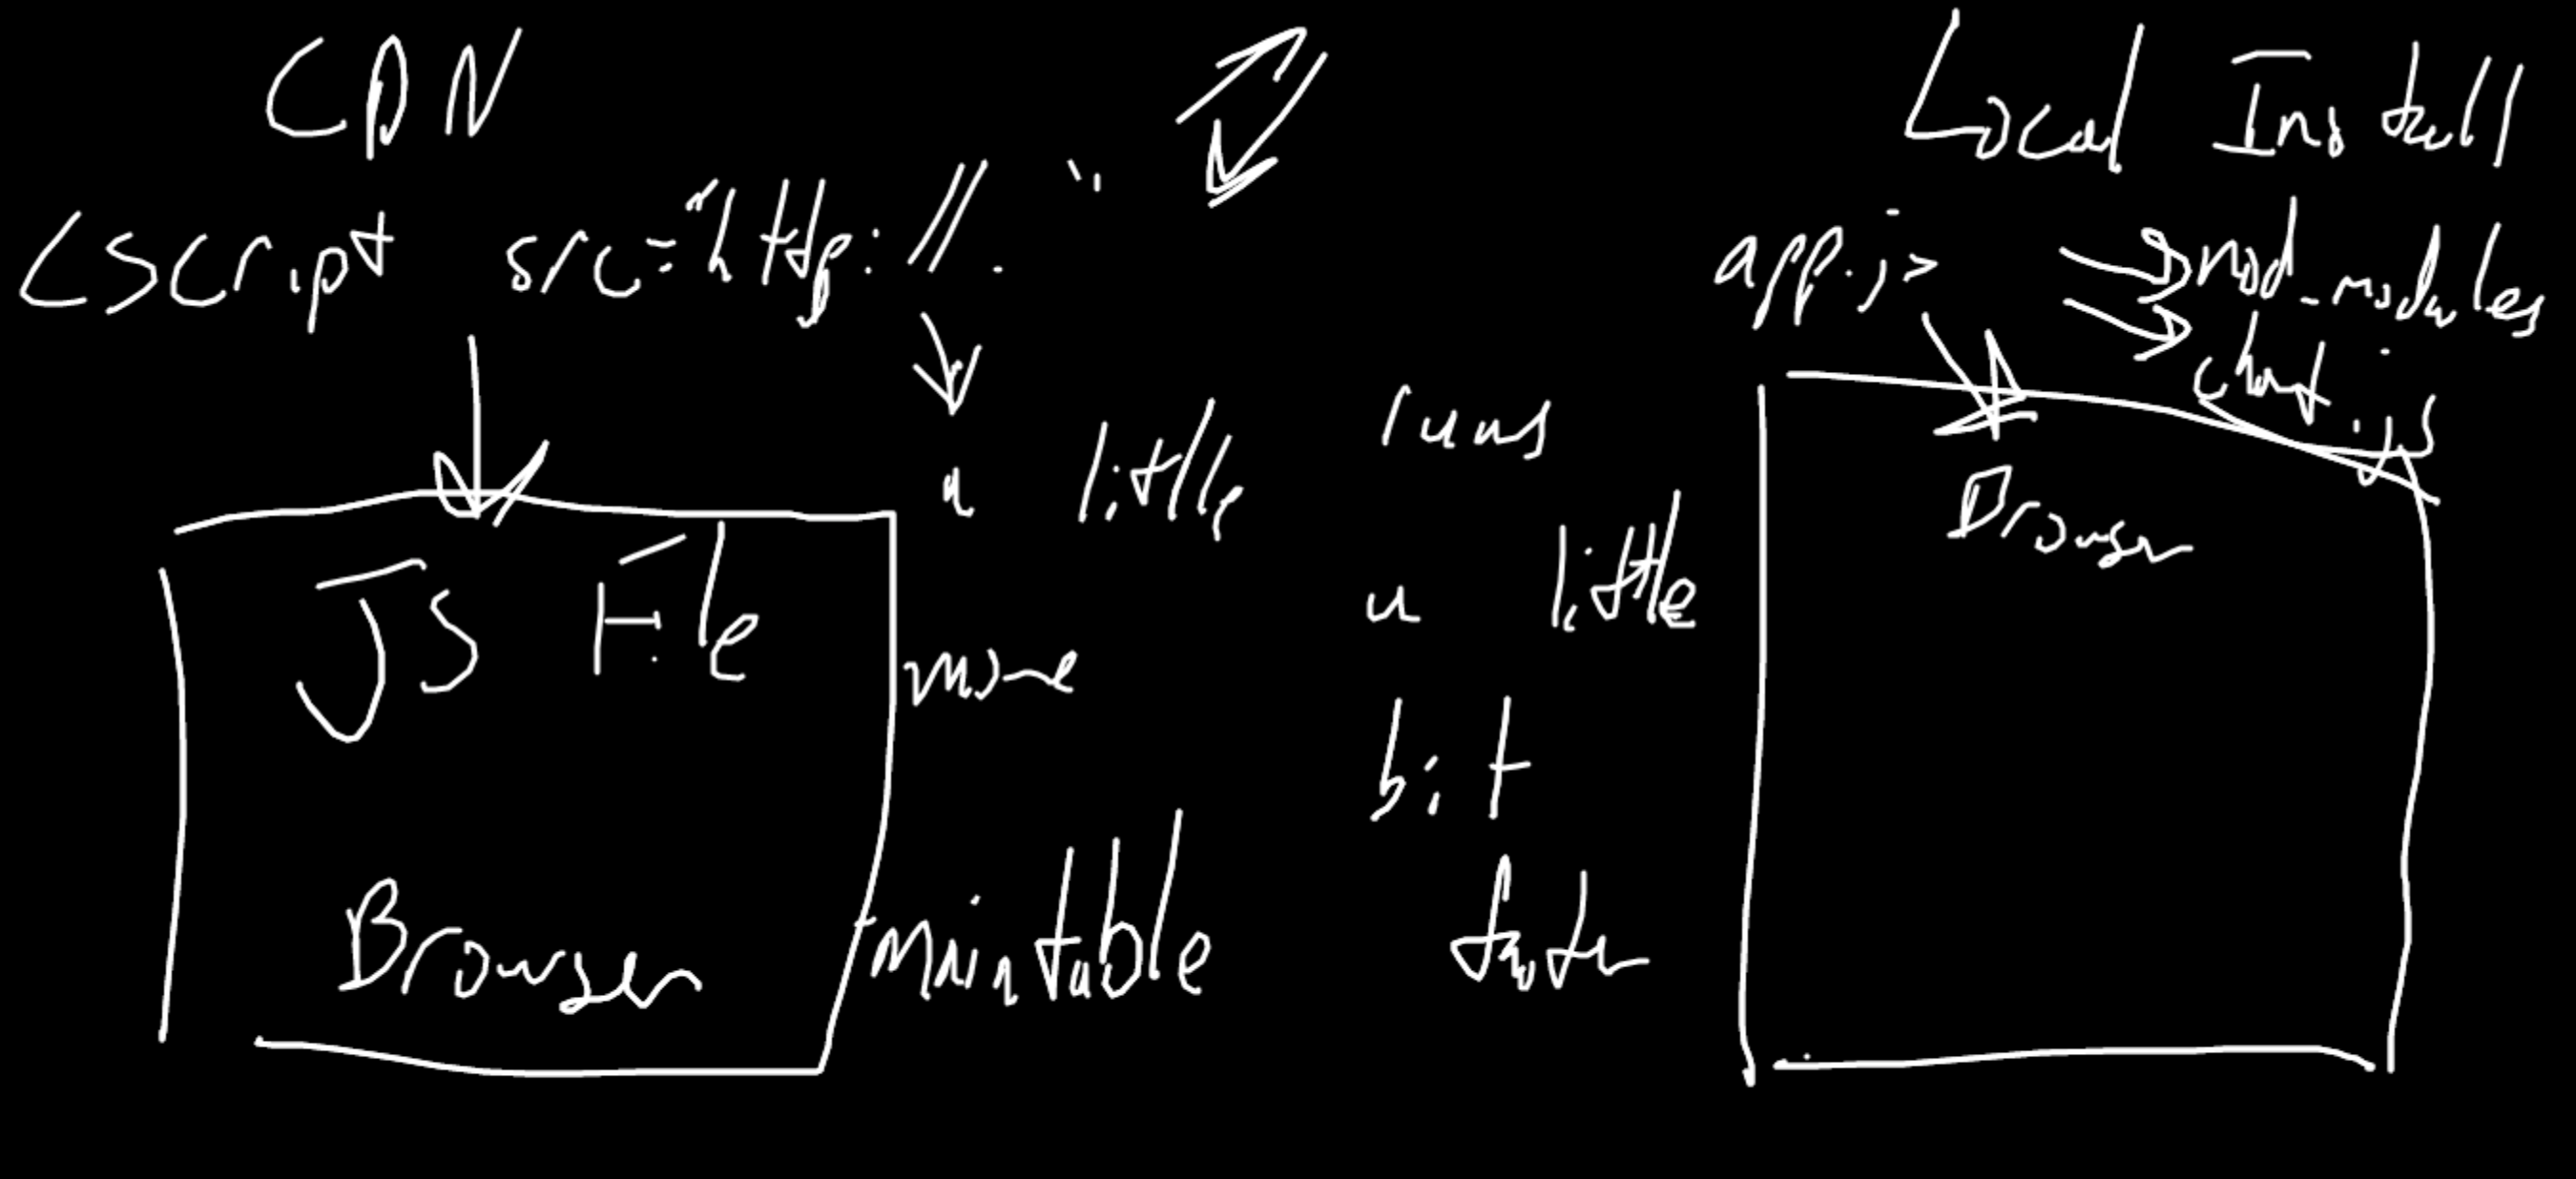 CDN
<script src="http://. "
JS File
Browser
a little
more
maintable
runs
a little
bit
faster
Local Install
app.js
nod_modules
chart.js
Browser